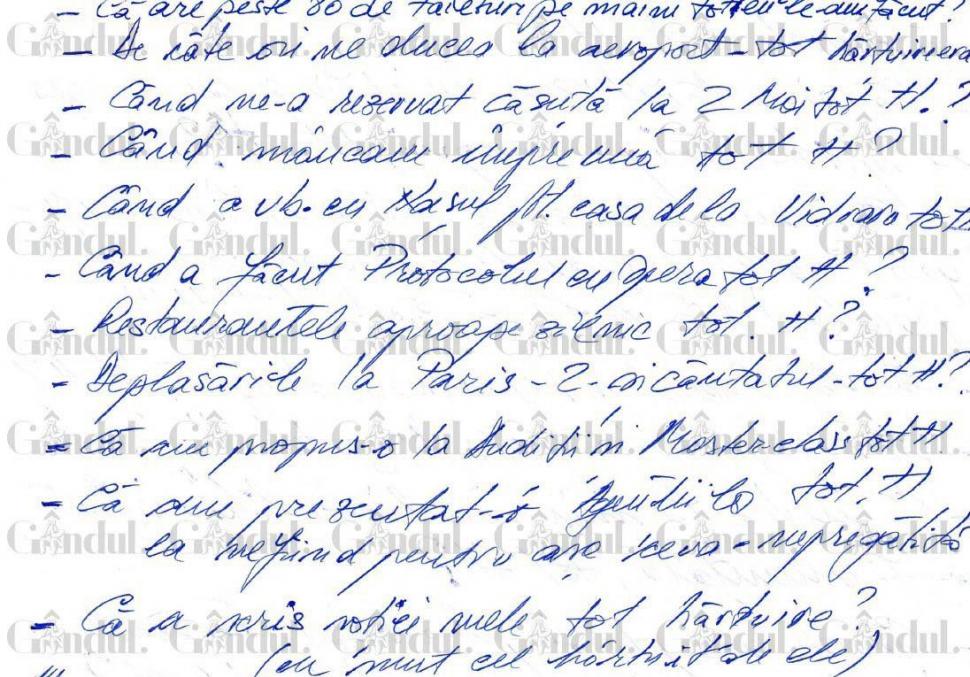 - Că are peste 80 de tăieturi pe mâini tot eu le-am făcut?
- De câte ori ne ducea la aeroport - tot hărțuire era
- Când ne-a rezervat căsuță la 2 Mai tot H.?
- Când mâncam împreună tot H?
- Când a vb. cu Nasul pt. casa de la Vidraru tot
- Când a făcut Protocolul cu Opera tot H?
- Restaurantele aproape zilnic tot. H?
- Deplasările la Paris - 2 - încântatul - tot H?
- Că am propus-o la Audiții în Masterclass tot H
- Că am prezentat-o Agenției tot. H
la nefiind pentru așa ceva - nepregătită
- Că a scris soției mele tot hărțuire?
(eu sunt cel hărțuit de ele)
Gândul.